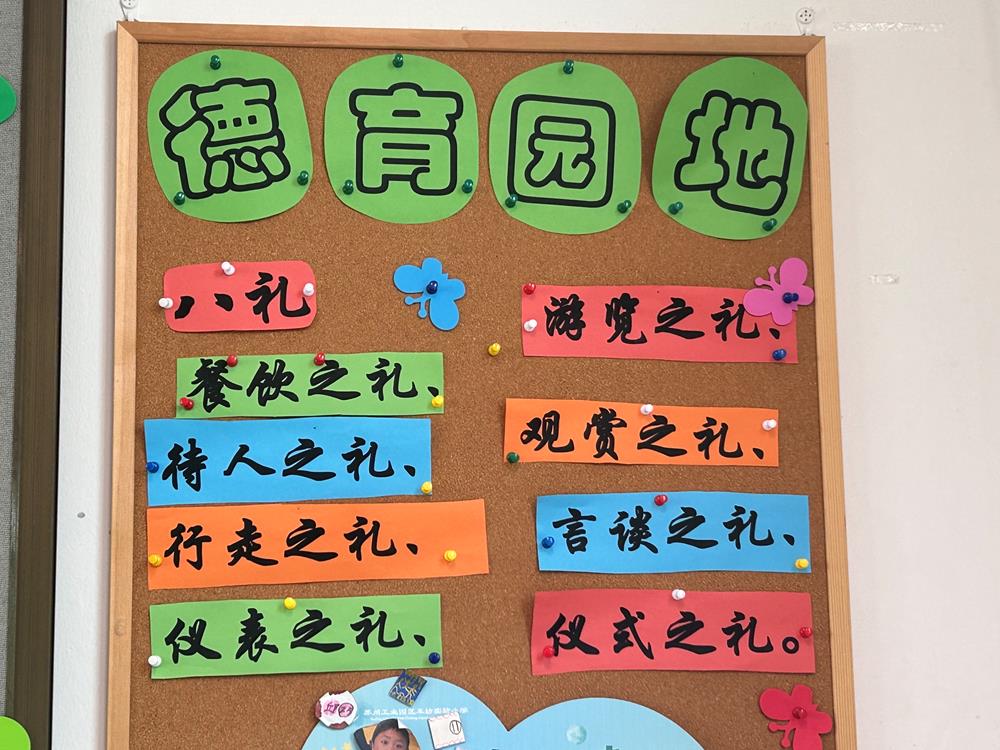 德育园地
八礼
餐饮之礼、
待人之礼、
行走之礼、
仪表之礼、
游览之礼、
观赏之礼、
言谈之礼、
仪式之礼。